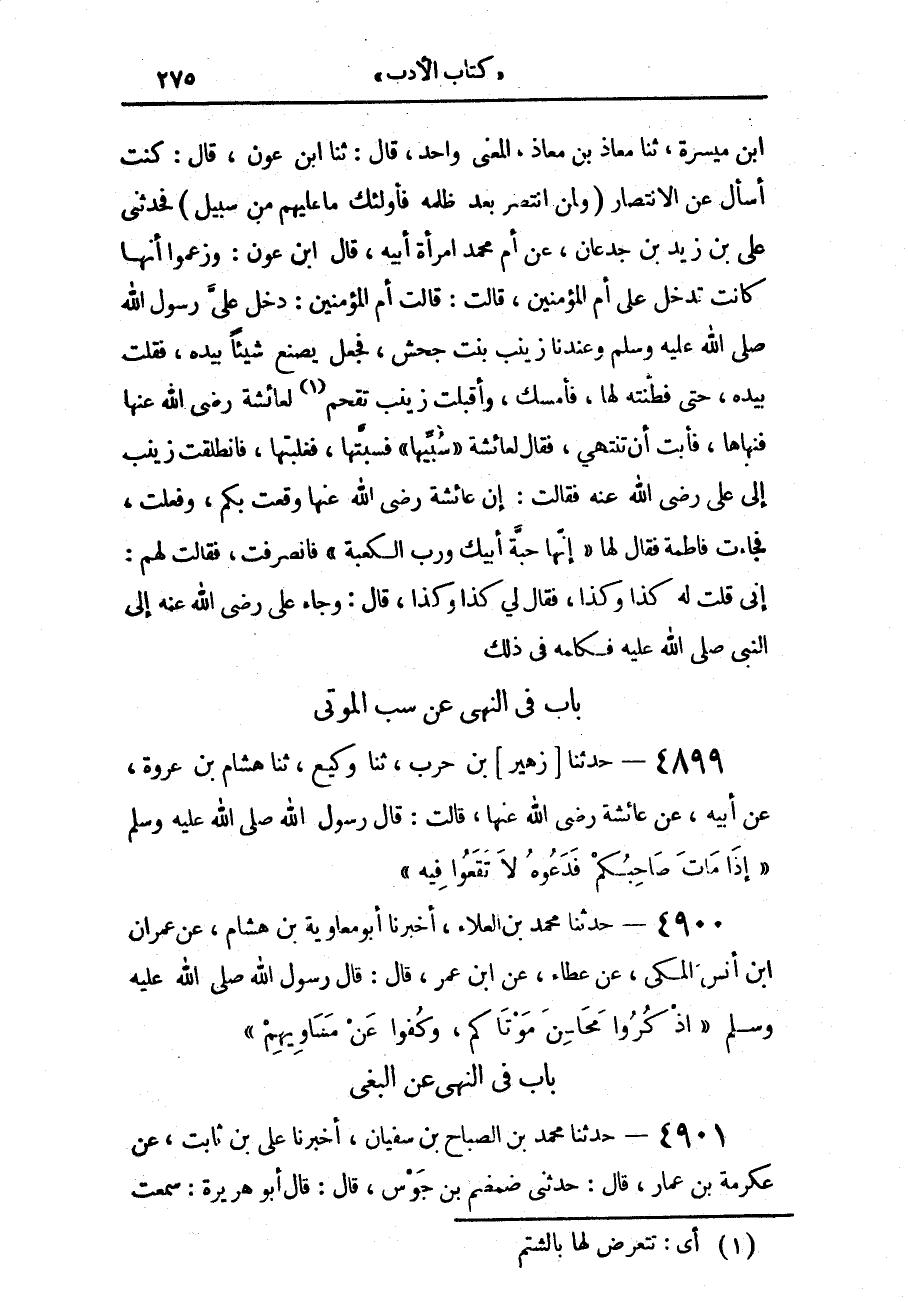 «كتاب الأدب» ٢٧٥
ابن ميسرة، ثنا معاذ بن معاذ، المعنى واحد، قال: ثنا ابن عون، قال: كنت
أسأل عن الانتصار (ولمن انتصر بعد ظلمه فأولئك ما عليهم من سبيل) فحدثنى
على بن زيد بن جدعان، عن أم محمد امرأة أبيه، قال ابن عون: وزعموا أنهـا
كانت تدخل على أم المؤمنين، قالت: قالت أم المؤمنين: دخل علىَّ رسول الله
صلى الله عليه وسلم وعندنا زينب بنت جحش، فجعل يصنع شيئاً بيده، فقلت
بيده، حتى فطَّنته لها، فأمسك، وأقبلت زينب تقحم (١) لعائشة رضى الله عنها
فنهاها، فأبت أن تنتهي، فقال لعائشة «سُبِّيها» فسبتَّها، فغلبتها، فانطلقت زينب
إلى على رضى الله عنه فقالت: إن عائشة رضى الله عنها وقعت بكم، وفعلت،
فجاءت فاطمة فقال لها «إنّها حبَّة أبيك ورب الـكعبة» فانصرفت، فقالت لهم:
إنى قلت له كذا وكذا، فقال لي كذا وكذا، قال: وجاء على رضى الله عنه إلى
النبى صلى الله عليه فـكلمه فى ذلك
باب فى النهى عن سب الموتى
٤٨٩٩ — حدثنا [زهير] بن حرب، ثنا وكيع، ثنا هشام بن عروة،
عن أبيه، عن عائشة رضى الله عنها، قالت: قال رسول الله صلى الله عليه وسلم
«إذَا مَاتَ صَاحِبُكمْ فَدَعُوهُ لاَ تَقَعُوا فِيه»
٤٩٠٠ — حدثنا محمد بن العلاء، أخبرنا أبو معاوية بن هشام، عن عمران
ابن أنس المـكى، عن عطاء، عن ابن عمر، قال: قال رسول الله صلى الله عليه
وسـلم «اذْ كُرُوا مَحَاسِنَ مَوْتَا كم، وكُفوا عَنْ مَسَاوِيهِمْ»
باب فى النهى عن البغى
٤٩٠١ — حدثنا محمد بن الصباح بن سفيان، أخبرنا على بن ثابت، عن
عكرمة بن عمار، قال: حدثنى ضمضم بن جَوْس، قال: قال أبو هريرة: سمعت
(١) أى: تتعرض لها بالشتم